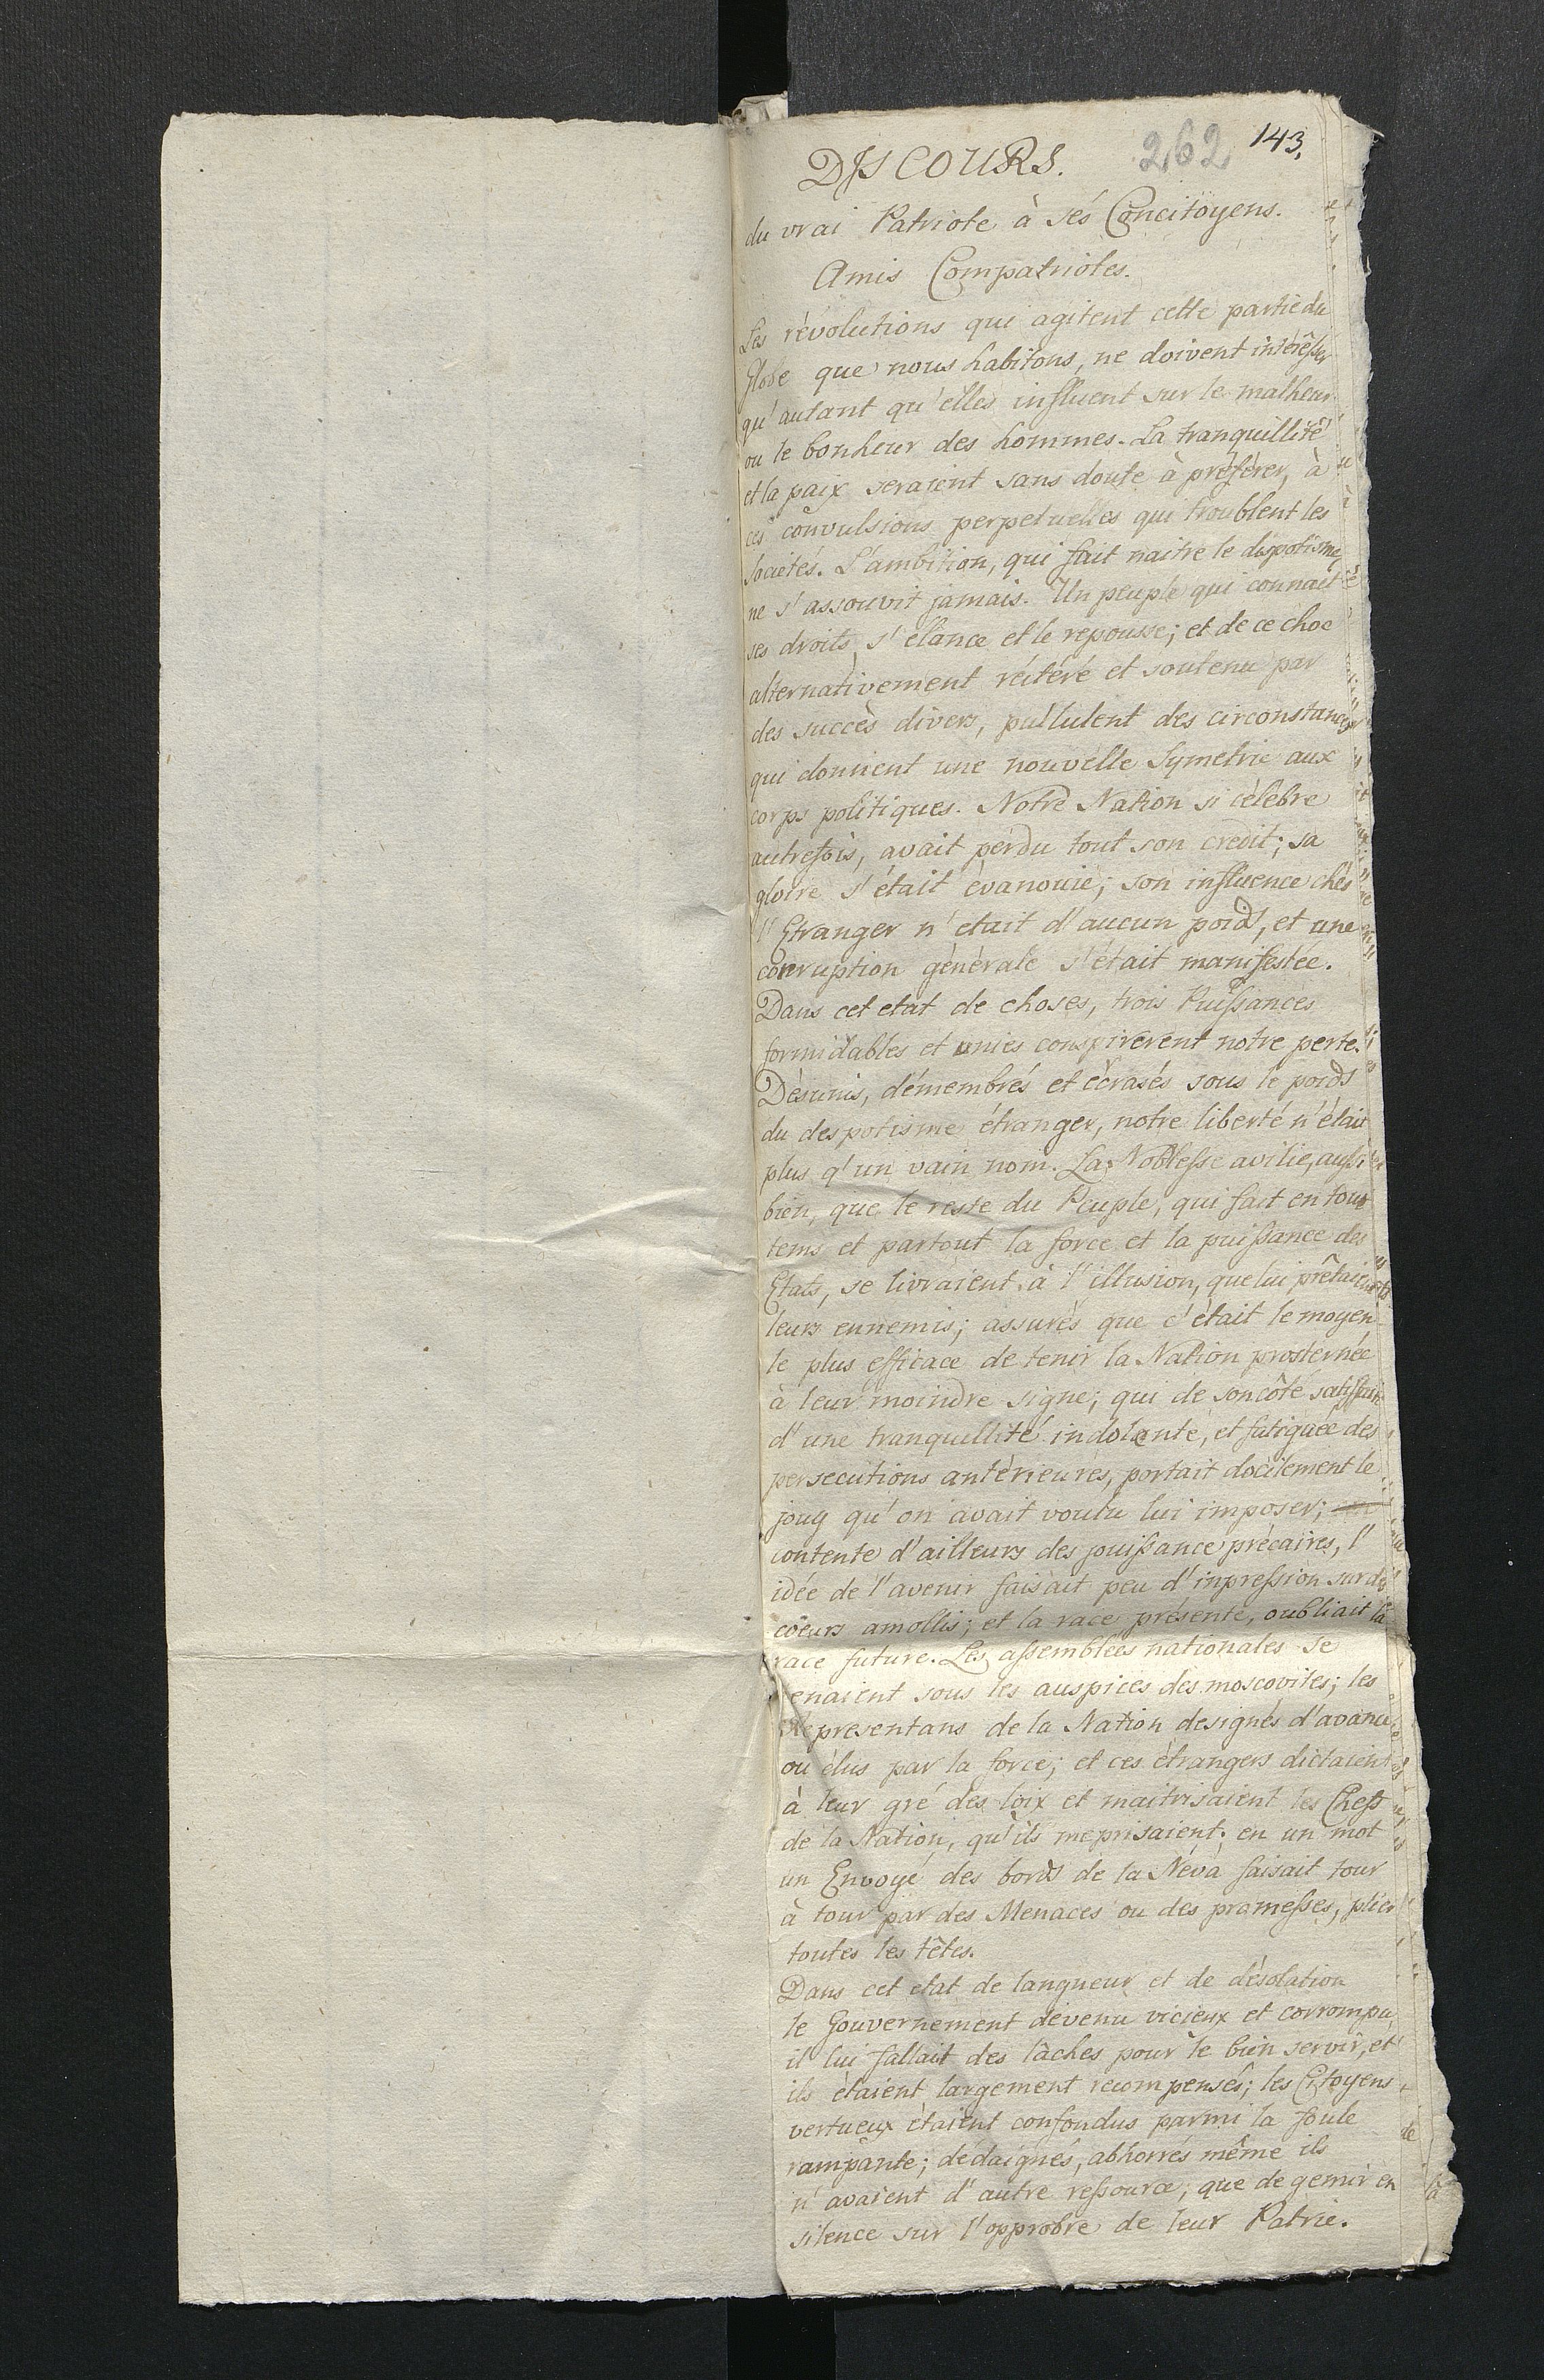 262 143,
DISCOURS.
du vrai Patriote à sés Concitöyens.
Amis Compatriotes.
Les révolutions qui agitent cette partie du
Globe que nous habitons, ne doivent intérêsser
qu'autant qu'elles influent sur le malheur
ou le bonheur des hommes. La tranquillité
et la paix seraient sans doute à préférer, à
ces convulsions perpetuelles qui troublent les
sociétés. L'ambition, qui fait naitre le dispotisme,
ne s'assouvit jamais. Un peuple qui connait
ses droits, s'élance et le repousse; et de ce choc
alternativement réitéré et soutenu par
des succès divers, pullulent des circonstances
qui donnent une nouvelle Symetrie aux
corps politiques. Notre Nation si célebre
autrefois, avait perdu tout son credit; sa
gloire s'était évanouie; son influence chés
l'Etranger n'etait d'aucun poids, et une
corruption générale s'était manifestée.
Dans cet etat de choses, trois Puissances
formidables et unies conspirerent notre perte.
Désunis, démembrés et écrasés sous le poids
du despotisme étranger, notre liberté n'était
plus q'un vain nom. La Noblesse avilie, aussi
bien, que le reste du Peuple, qui fait en tous
tems et partout la force et la puissance des
Etats, se livraient à l'illusion, que lui prêtaient
leurs ennemis; assurés que c'était le moyen
le plus efficace de tenir la Nation prosternée
à leur moindre signe; qui de son côté satisfaite
d'une tranquillité indolente, et fatiguée des
persecutions antérieures, portait docilement le
joug qu'on avait voulu lui imposer;
contente d'ailleurs des jouissance précaires, l'
idée de l'avenir faisait peu d'inpression sur des
coeurs amollis; et la race présente, oubliait la
race future. Les assemblées nationales se
tenaient sous les auspices des moscovites; les
Representans de la Nation designés d'avance
ou élus par la force; et ces étrangers dictaient
à leur gré des loix et maitrisaient les Chefs
de la Nation, qu'ils meprisaient; en un mot
un Envoyé des bords de la Néva faisait tour
à tour par des Menaces ou des promesses, plier
toutes les têtes.
Dans cet etat de langueur et de désolation
le Gouvernement devenu vicieux et corrompu,
il lui fallait des lâches pour le bien servir, et
ils étaient largement recompensés; les Citoyens
vertueux étaient confondus parmi la foule
rampante; dédaignés, abhorrés même ils
n'avaient d'autre ressource, que de gemir en
silence sur l'opprobre de leur Patrie.